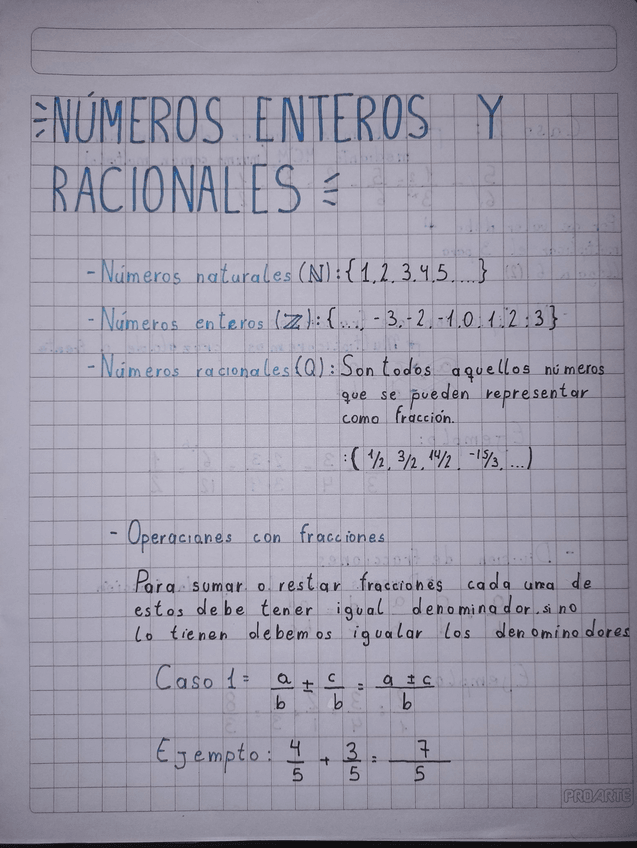 NÚMEROS ENTEROS Y
RACIONALES
- Números naturales (ℕ): {1, 2, 3, 4, 5, ....}
- Números enteros (ℤ): {..., -3, -2, -1, 0, 1, 2, 3}
- Números racionales (Q): Son todos aquellos números
que se pueden representar
como fracción.
: ( 1/2, 3/2, 14/2, -15/3, ...)
- Operaciones con fracciones
Para sumar o restar fracciones cada una de
estos debe tener igual denominador. si no
lo tienen debemos igualar los denominodores
Caso 1 = a/b ± c/b = a ± c/b
Ejempto: 4/5 + 3/5 = 7/5
PROARTE